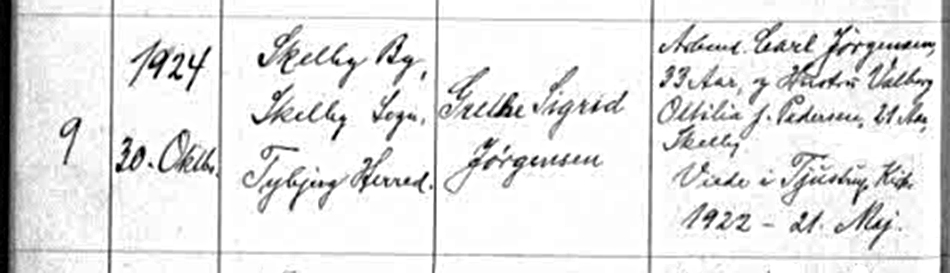 9
1924
30. Oktbr.
Skelby By,
Skelby Sogn,
Tybjerg Herred.
Grethe Sigrid
Jørgensen
Arbmd. Carl Jørgensen,
33 Aar, og Hustru Valborg
Ottilia f. Pedersen, 21 Aar,
Skelby
Viede i Tjustrup Kirke
1922 - 21. Maj.